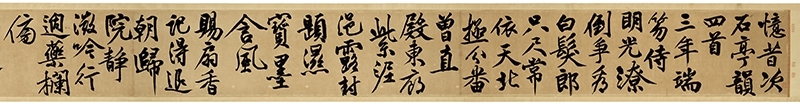 憶昔次
石亭韻
四首
三年端
笏侍
明光潦
倒爭看
白髮郎
只尺常
依天北
極分番
曾直
殿東廊
紫泥
浥露封
題濕
寶墨
含風
賜扇香
記得退
朝歸
院靜
微吟行
過藥欄
傍